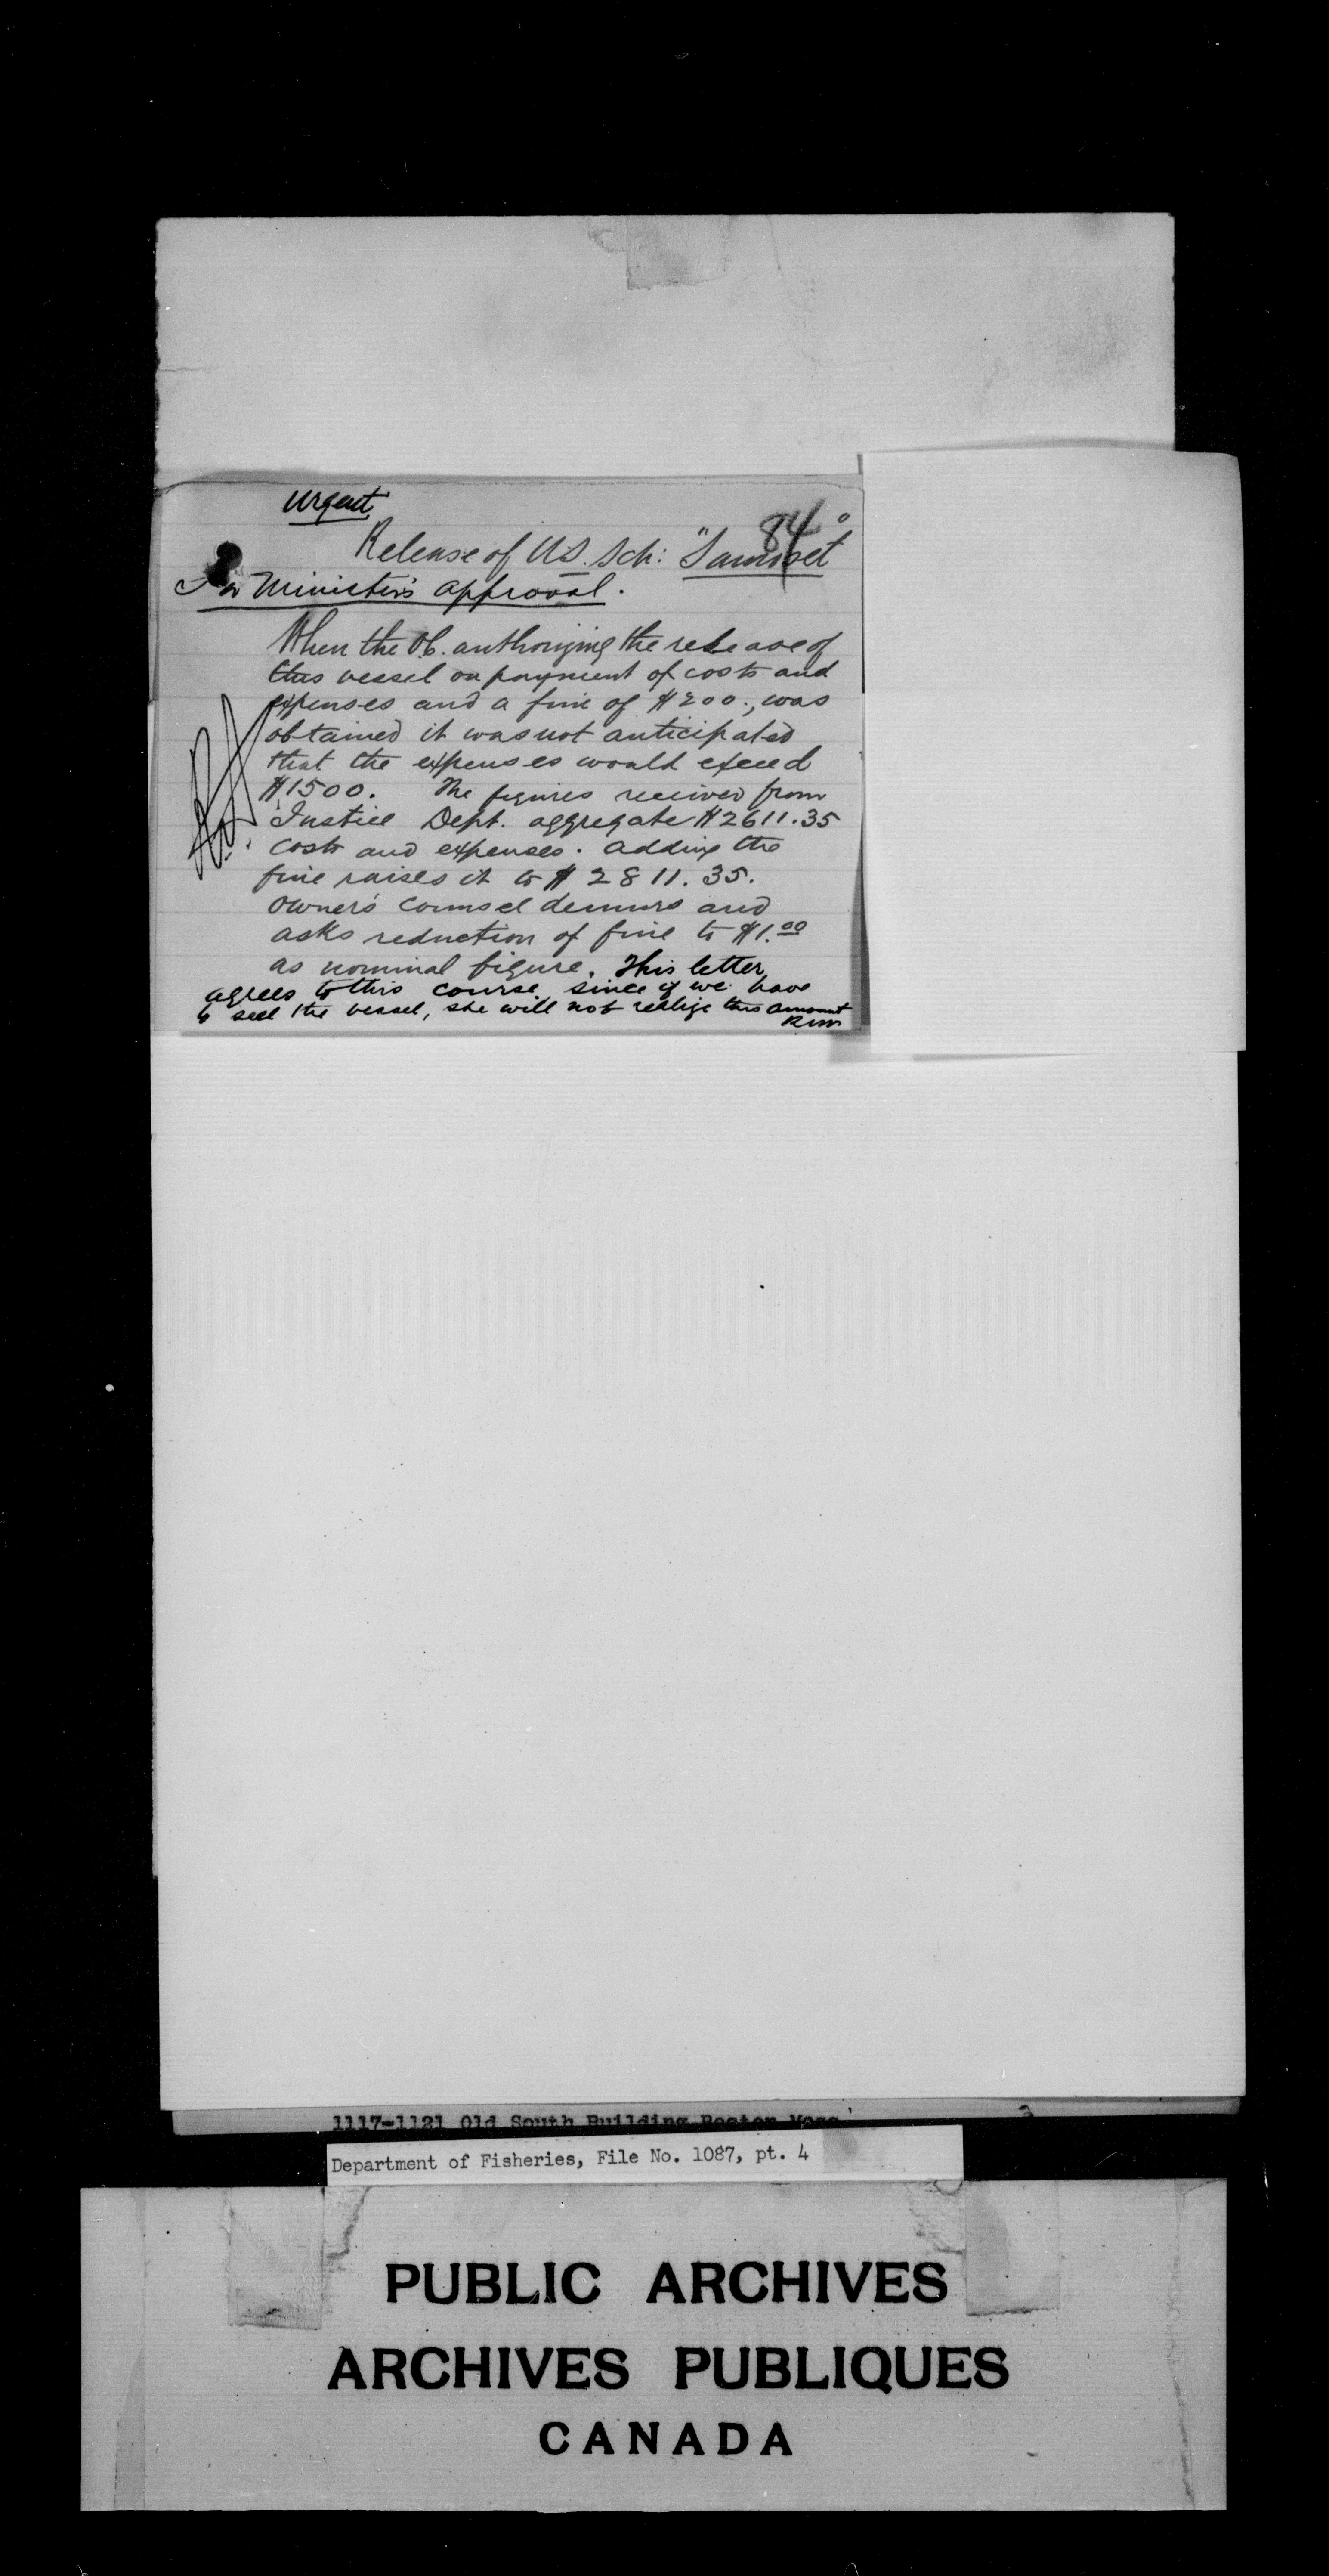 Urgent
84
Release of U.S. Sch: "Samoset"
For Minister's approval.
When the O.C. authorizing the release of
this vessel on payment of costs and
expenses and a fine of $200., was
obtained it was not anticipated
that the expenses would exceed
$1500. The figures received from
Justice Dept. aggregate $2611.35
costs and expenses. Adding the
fine raises it to $2811.35.
Owner's counsel demurs and
asks reduction of fine to $1.00
as nominal figure. This letter
agrees to this course, since if we have
to sell the vessel, she will not realize this amount
1117-1121 Old South Building Boston Mass.
Department of Fisheries, File No. 1087, pt. 4
PUBLIC ARCHIVES
ARCHIVES PUBLIQUES
CANADA